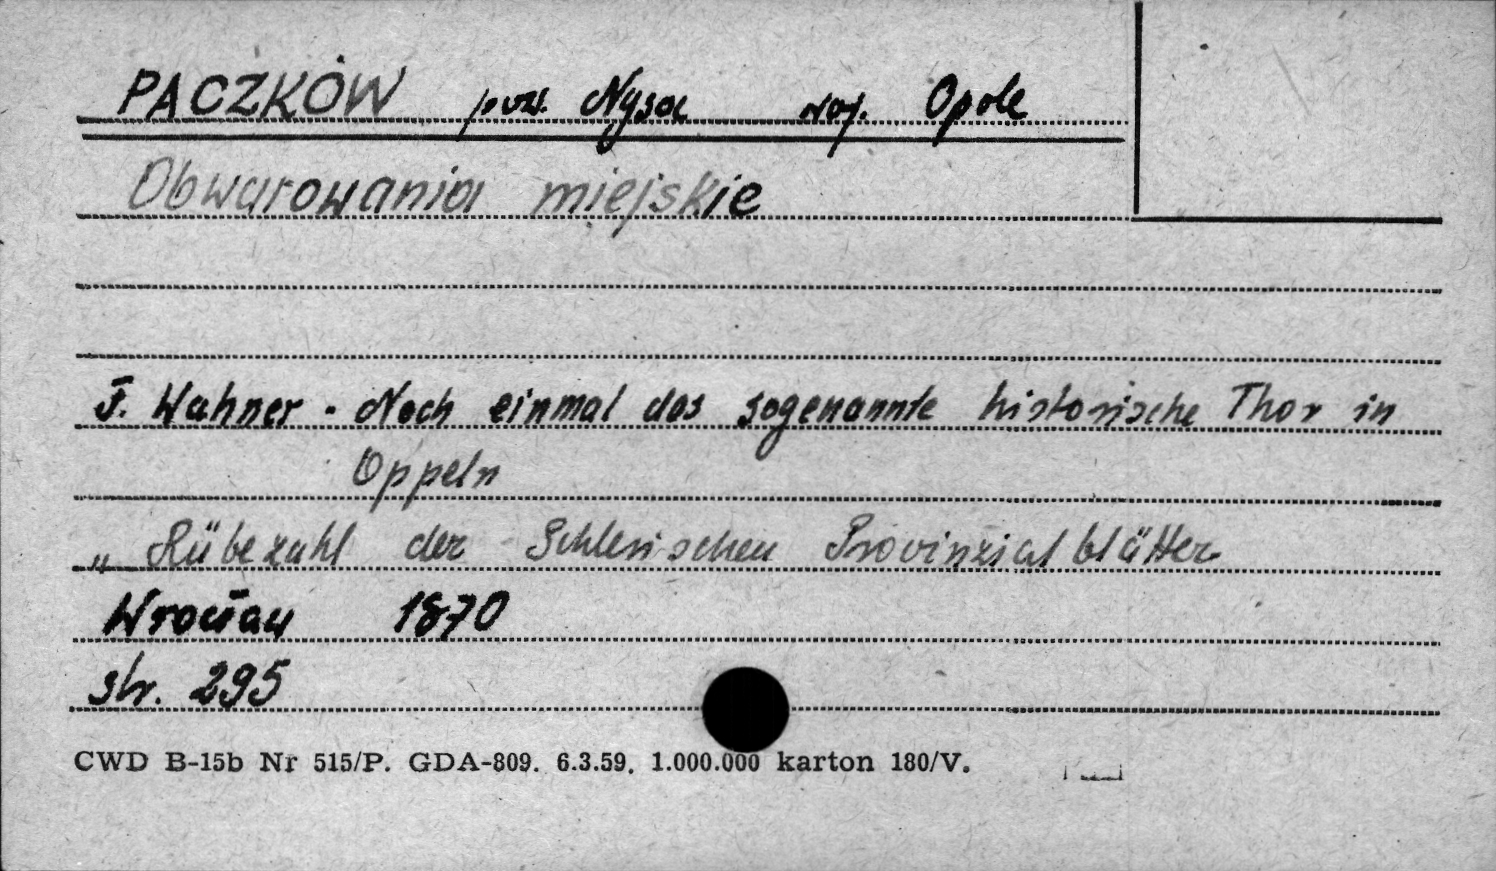 PACZKÓW pow. Nysa woj. Opole
Obwarowania miejskie
J. Wahner - Noch einmal das sogenannte historische Thor in
Oppeln
„ Rübezahl der Schlesischen Provinzialblätter
Wrocław 1870
str. 295
CWD B-15b Nr 515/P. GDA-809. 6.3.59. 1.000.000 karton 180/V.